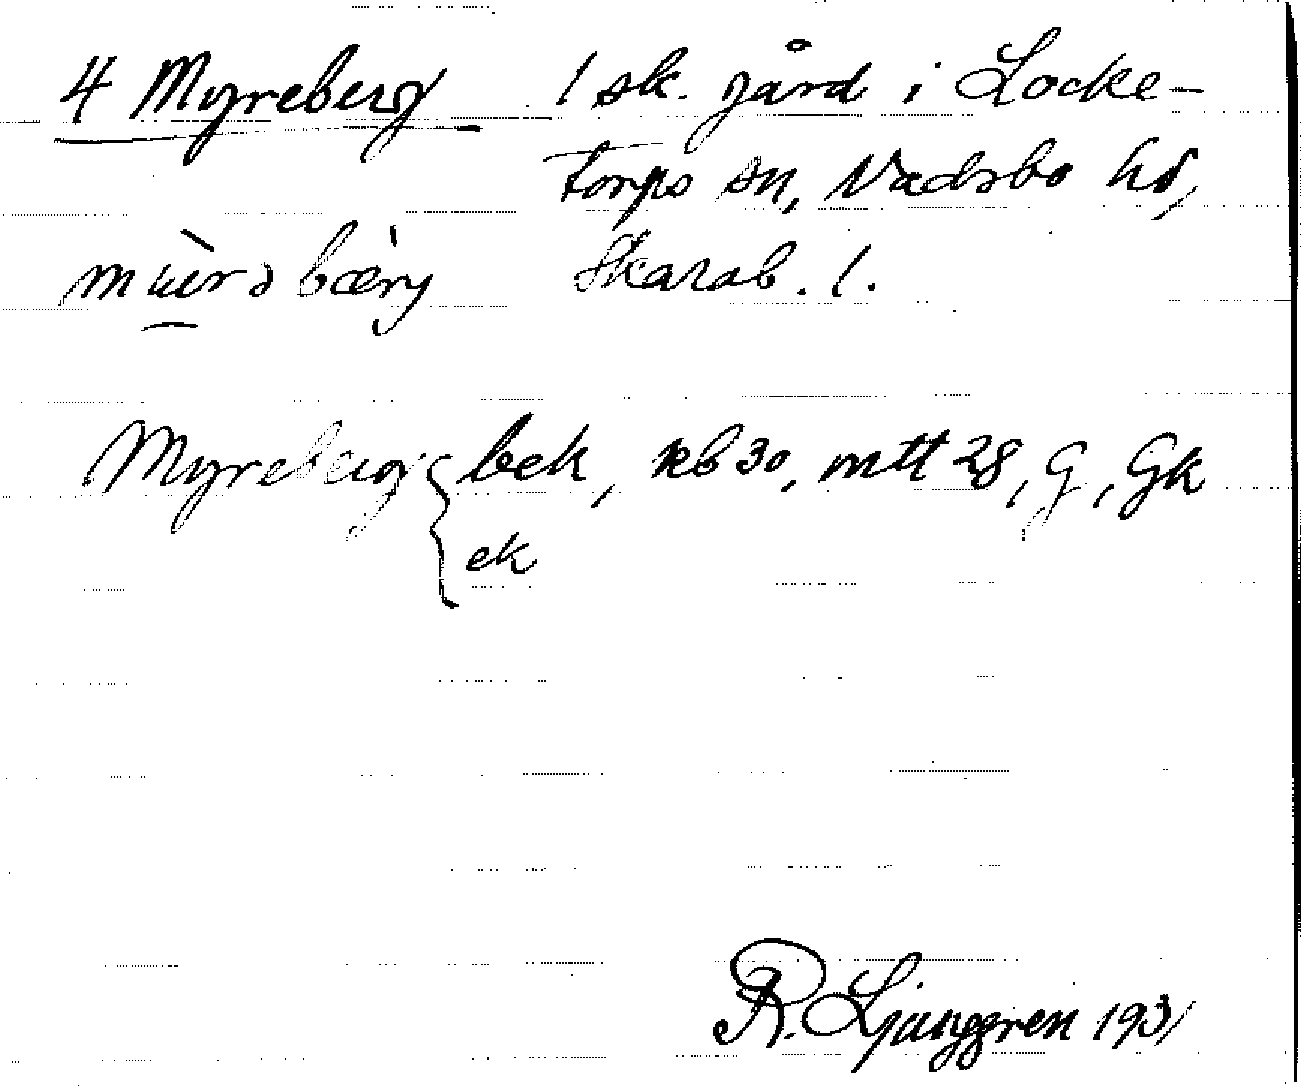 4 Myreberg 1 sk. gård i Locke-
torps sn, Vadsbo hd,
Skarab. l.
Myreberg { bek, kb 30, mtt 28, G, Gk
ek
R. Ljunggren 1931